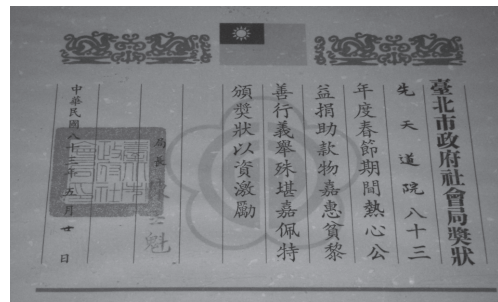 臺北市政府社會局獎狀
先天道院八十三
年度春節期間熱心公
益捐助款物嘉惠貧黎
善行義舉殊堪嘉佩特
頒獎狀以資激勵
局長
中華民國八十三年五月廿日